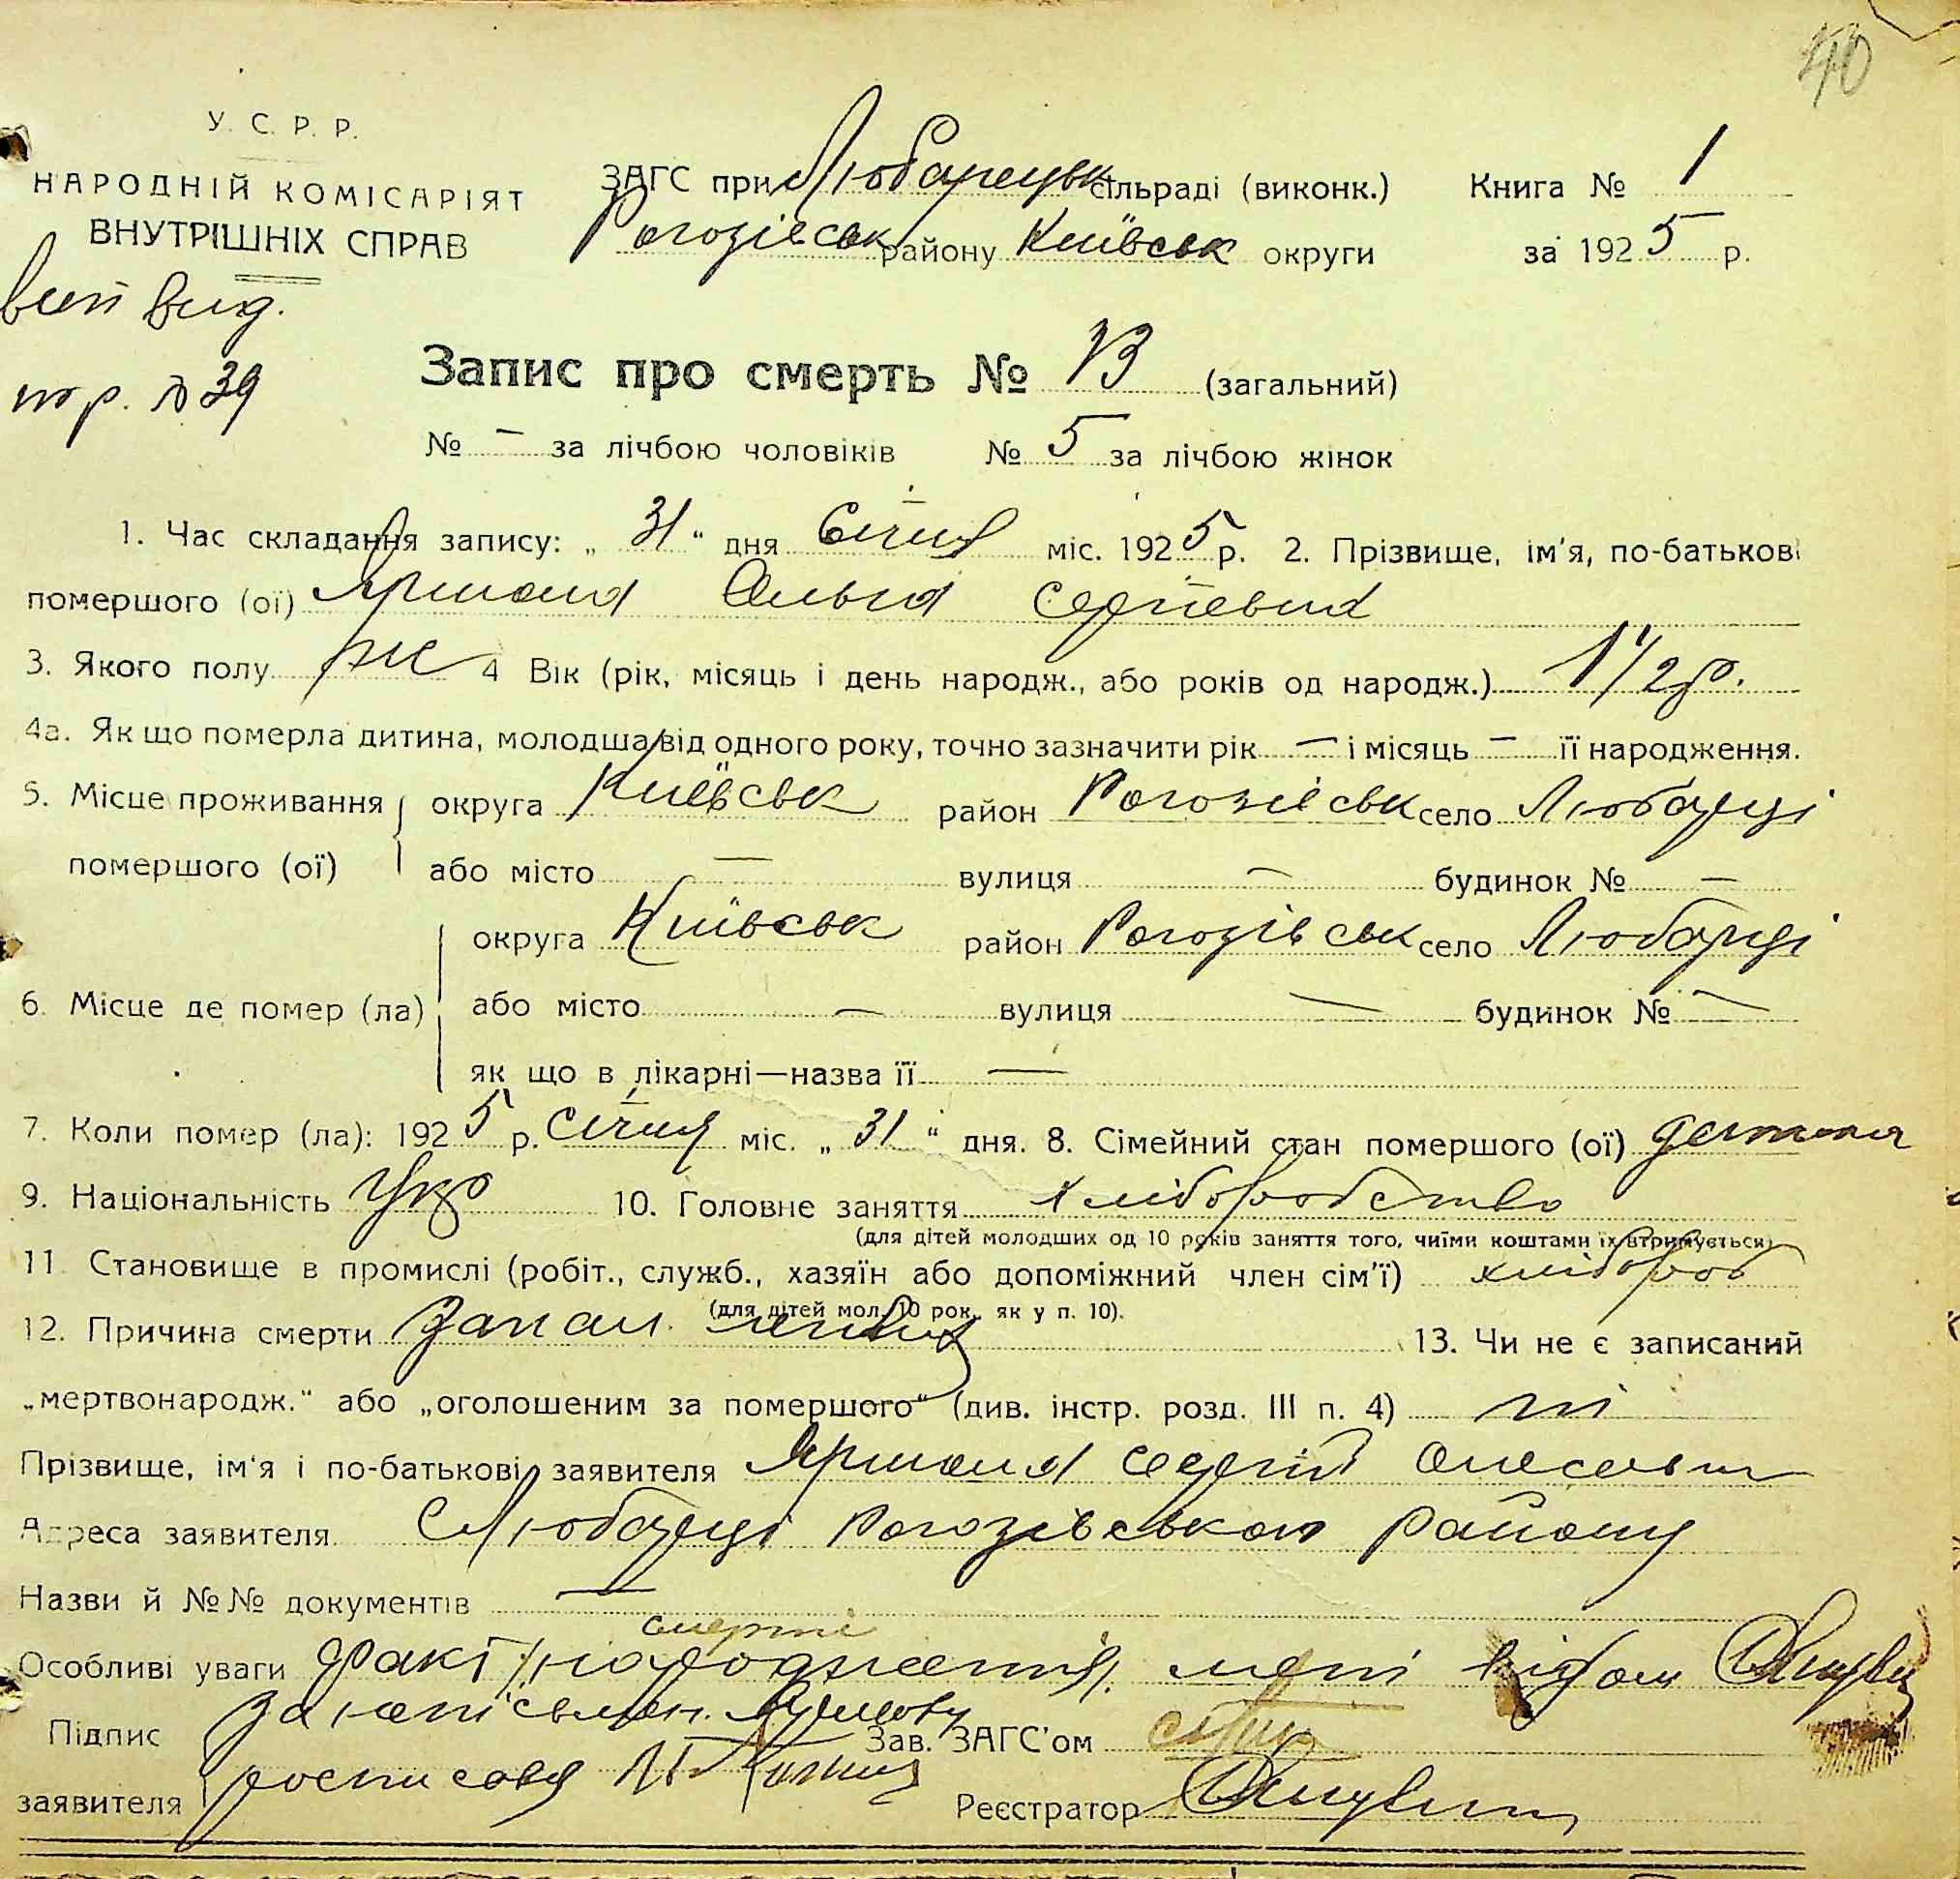 40
У. С. Р. Р.
НАРОДНІЙ КОМІСАРІЯТ
ВНУТРІШНІХ СПРАВ
ЗАГС при Любарецьк сільраді (виконк.) Книга № 1
Рогозівськ району Київськ округи за 1925 р.
вид.
39
Запис про смерть № 13 (загальний)
№ — за лічбою чоловіків № 5 за лічбою жінок
1. Час складання запису: „31“ дня Січня міс. 1925 р. 2. Прізвище, ім'я, по-батькові
помершого (ої) Ярмола Ольга Сергіевна
3. Якого полу ж 4 Вік (рік, місяць і день народж., або років од народж.) 1 1/2 р.
4а. Як що померла дитина, молодша від одного року, точно зазначити рік — і місяць — її народження.
5. Місце проживання округа Київськ район Рогозівськ село Любарці
помершого (ої) або місто — вулиця — будинок № —
округа Київськ район Рогозівськ село Любарці
6. Місце де помер (ла) або місто — вулиця — будинок № —
як що в лікарні—назва її —
7. Коли помер (ла): 1925 р. Січня міс. „31“ дня. 8. Сімейний стан помершого (ої) дитина
9. Національність Укр 10. Головне заняття хліборобство
(для дітей молодших од 10 років заняття того, чиїми коштами їх втримується)
11 Становище в промислі (робіт., служб., хазяїн або допоміжний член сім'ї) хлібороб
(для дітей мол. 10 рок., як у п. 10).
12. Причина смерти Запал. легких 13. Чи не є записаний
„мертвонародж.“ або „оголошеним за помершого“ (див. інстр. розд. III п. 4) ні
Прізвище, ім'я і по-батькові заявителя Ярмола Сергій
Адреса заявителя С Любарці Рогозівського району
Назви й №№ документів —
смерті
Особливі уваги Факт народження мені відом
Підпис за неписьмен. Зав. ЗАГС'ом
заявителя росписався Реєстратор